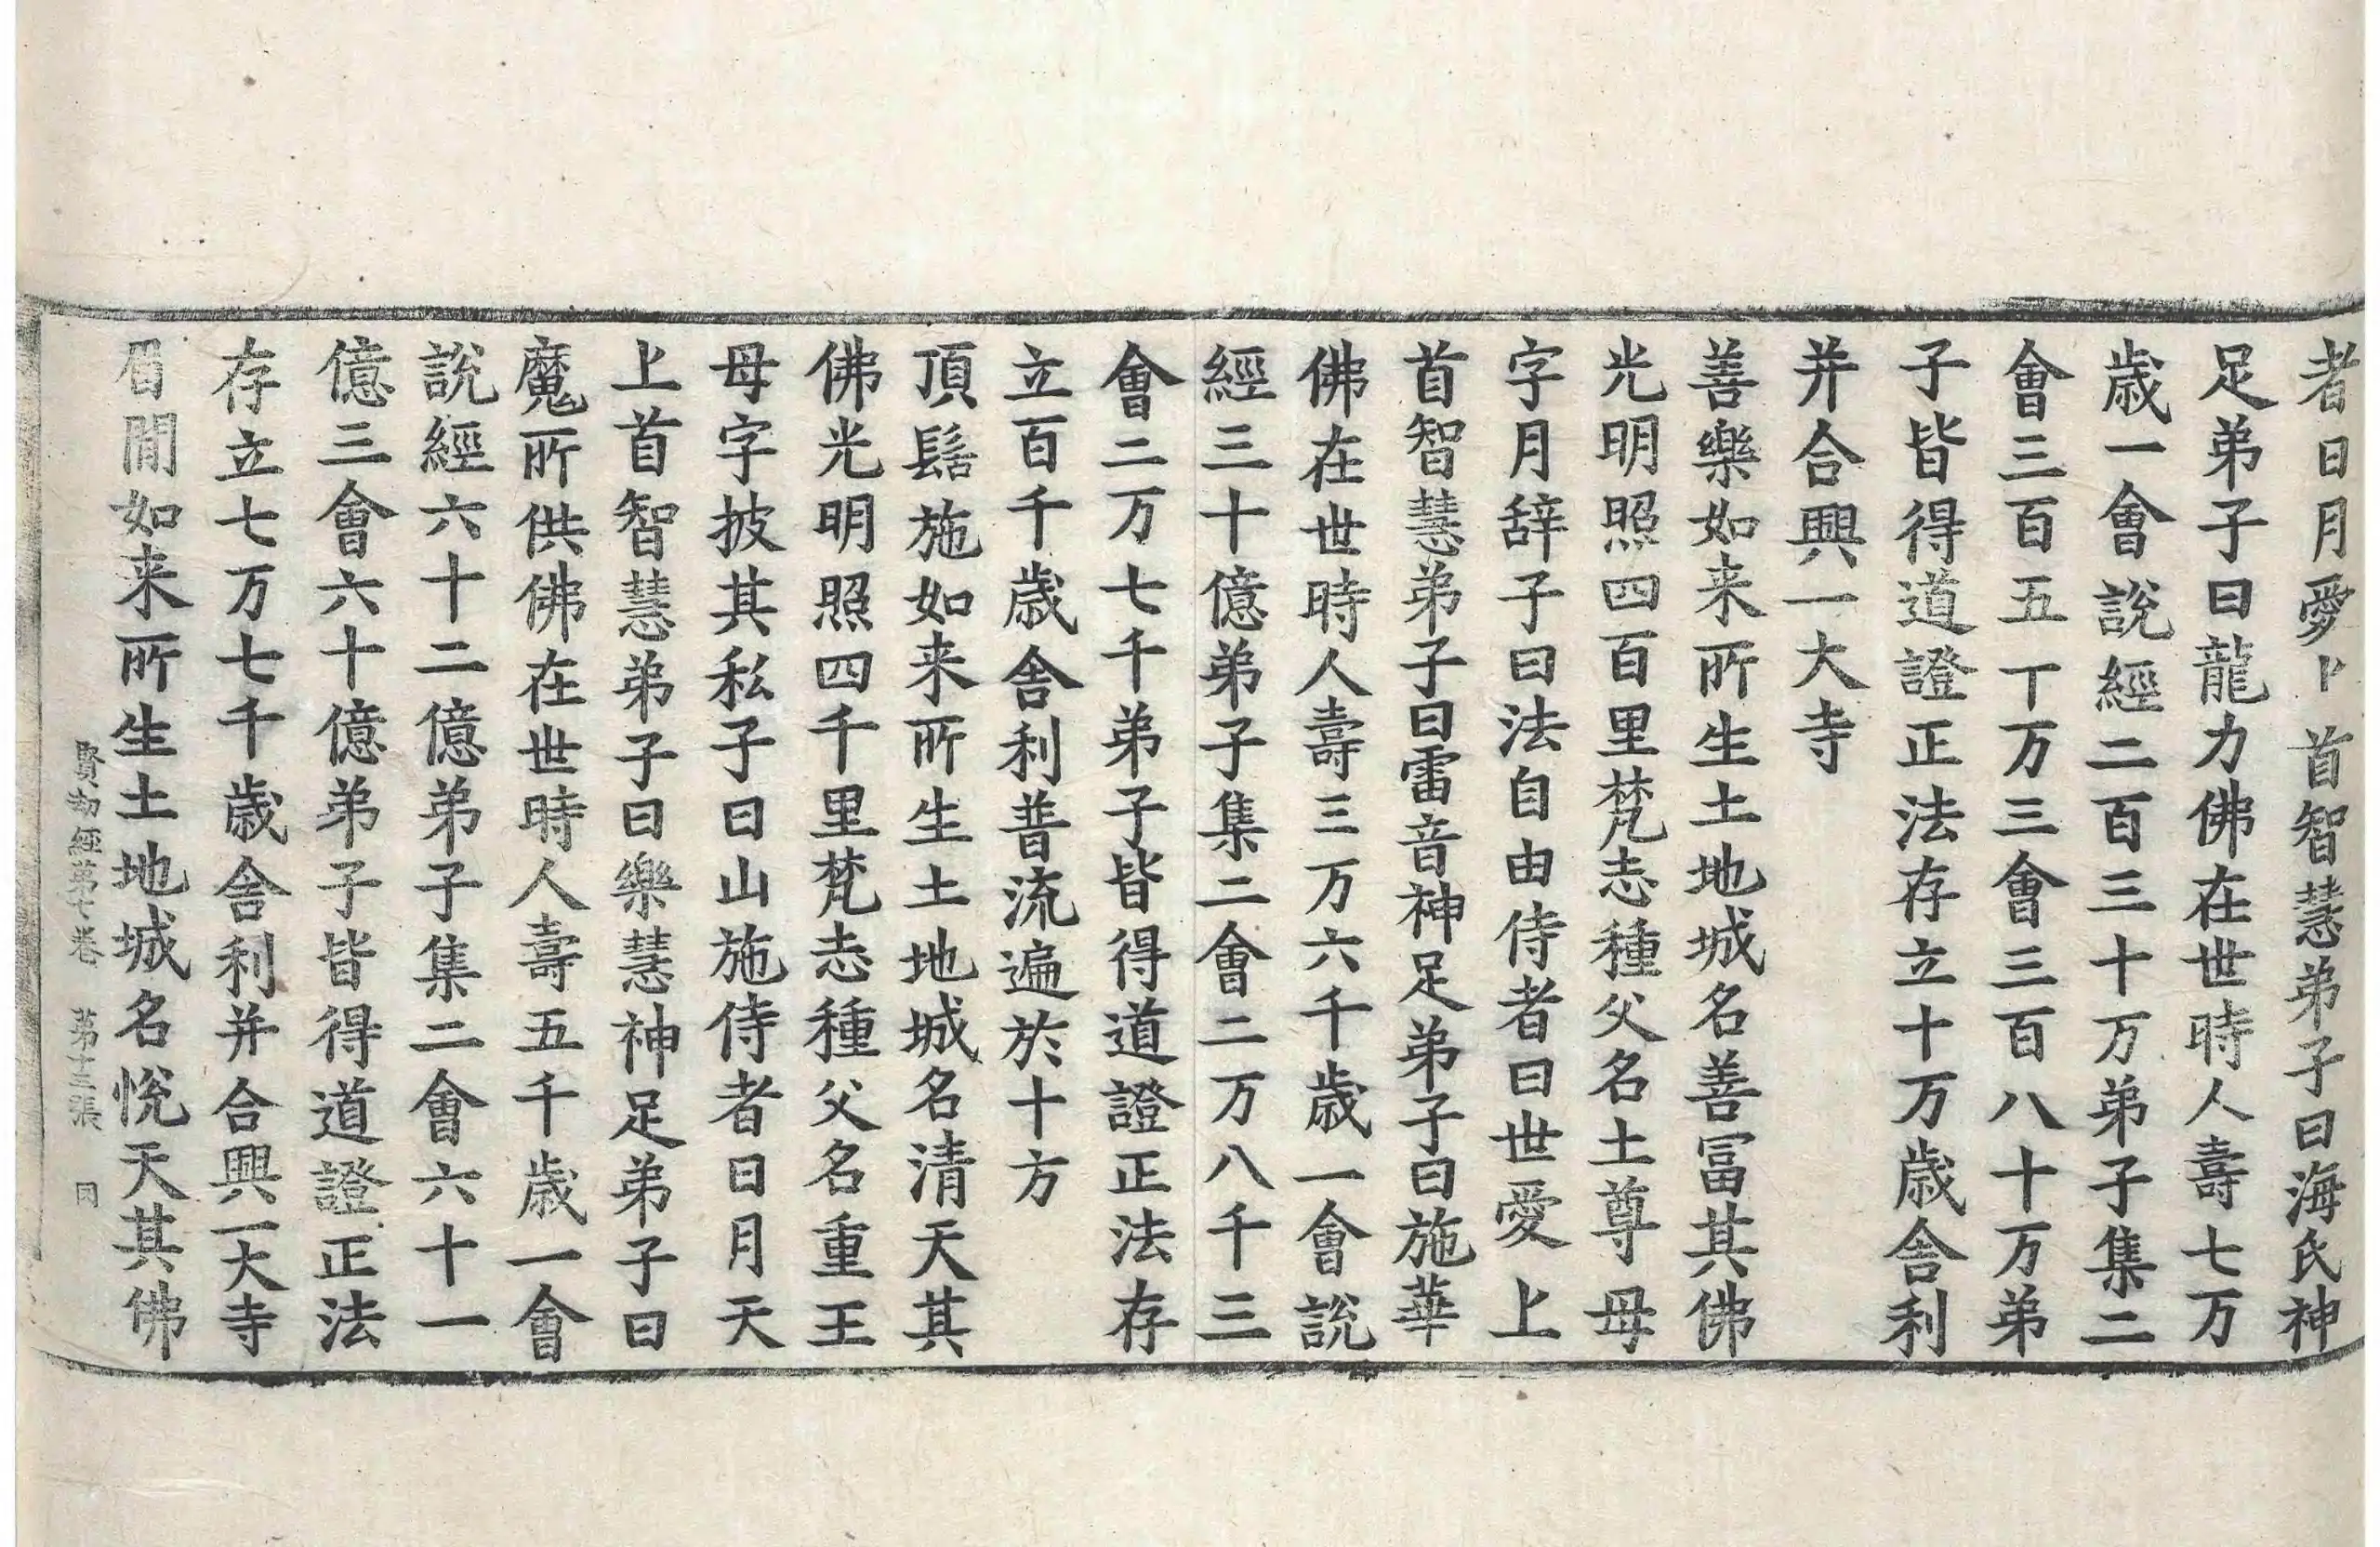 者曰月愛上首智慧弟子曰海氏神
足弟子曰龍力佛在世時人壽七万
歳一會說經二百三十万弟子集二
會三百五丁万三會三百八十万弟
子皆得道證正法存立十万歳舎利
并合興一大寺
善樂如来所生土地城名善冨其佛
光明照四百里梵志種父名土尊母
字月辞子曰法自由侍者曰世愛上
首智慧弟子曰雷音神足弟子曰施華
佛在世時人壽三万六千歳一會說
經三十億弟子集二會二万八千三
會二万七千弟子皆得道證正法存
立百千歳舎利普流遍於十方
頂髻施如来所生土地城名清天其
佛光明照四千里梵志種父名重王
母字披其私子曰山施侍者曰月天
上首智慧弟子曰樂慧神足弟子曰
魔所供佛在世時人壽五千歳一會
說經六十二億弟子集二會六十一
億三會六十億弟子皆得道證正法
存立七万七千歳舎利并合興一大寺
眉間如来所生土地城名悅天其佛
賢劫經第七卷 第十三張 同